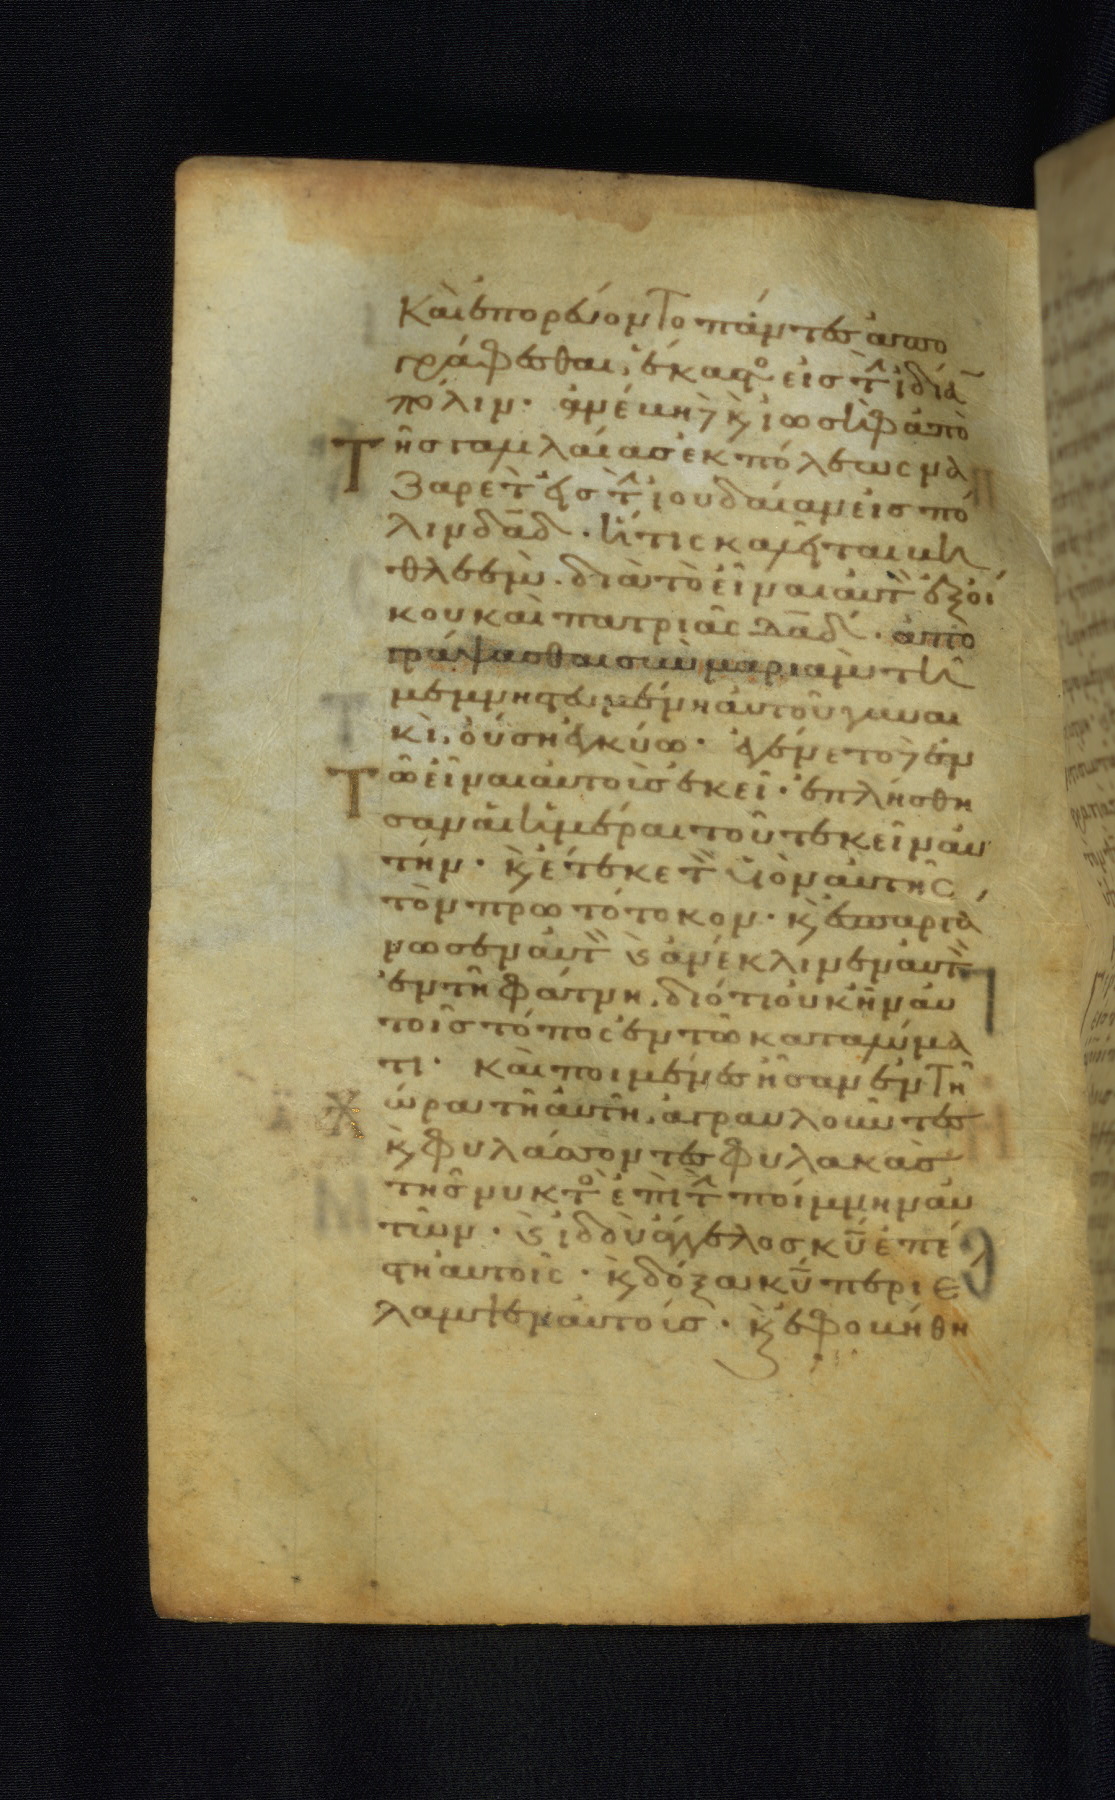 Καὶ ἐπορεύοντο πάντες ἀπο
γράφεσθαι, ἕκαστο εἰς τ ἰδία
πόλιν· ἀνέβη δὲ κ ἰωσὴφ ἀπὸ
τῆς γαλιλαίας ἐκ πόλεως να
ζαρὲτ εἰς τ ἰουδαίαν εἰς πό
λιν δαδ· ἥτις καλεῖται βη
θλεέμ. διὰ τὸ εἶναι αὐτ ἐξ οἴ
κου καὶ πατριᾶς δαδ. ἀπο
γράψασθαι σὺν μαριὰμ τῆ
μεμνηστευμένη αὐτοῦ γυναι
κὶ, οὔση ἐγκύω· ἐγένετο δὲ ἐν
τῶ εἶναι αὐτοὺς ἐκεῖ· ἐπλήσθη
σαν αἱ ἡμέραι τοῦ τεκεῖν αὐ
τήν· κ ἔτεκε τ υἱὸν αὐτῆς
τὸν πρωτότοκον· κ ἐσπαργά
νωσεν αὐτ κ ἀνέκλινεν αὐτ
ἐν τῆ φάτνη, διότι οὐκ ἦν αὐ
τοῖς τόπος ἐν τῶ καταλύμα
τι· Καὶ ποιμένες ἦσαν ἐν τῆ
χώρα τῆ αὐτῆ, ἀγραυλοῦντες
κ φυλάσσοντες φυλακὰς
τῆς νυκτο ἐπὶ τ ποίμνην αὐ
τῶν· κ ἰδοὺ ἄγγελος κυ ἐπέ
στη αὐτοῖς· κ δόξα κυ περιέ
λαμψεν αὐτούς· κ ἐφοβήθη